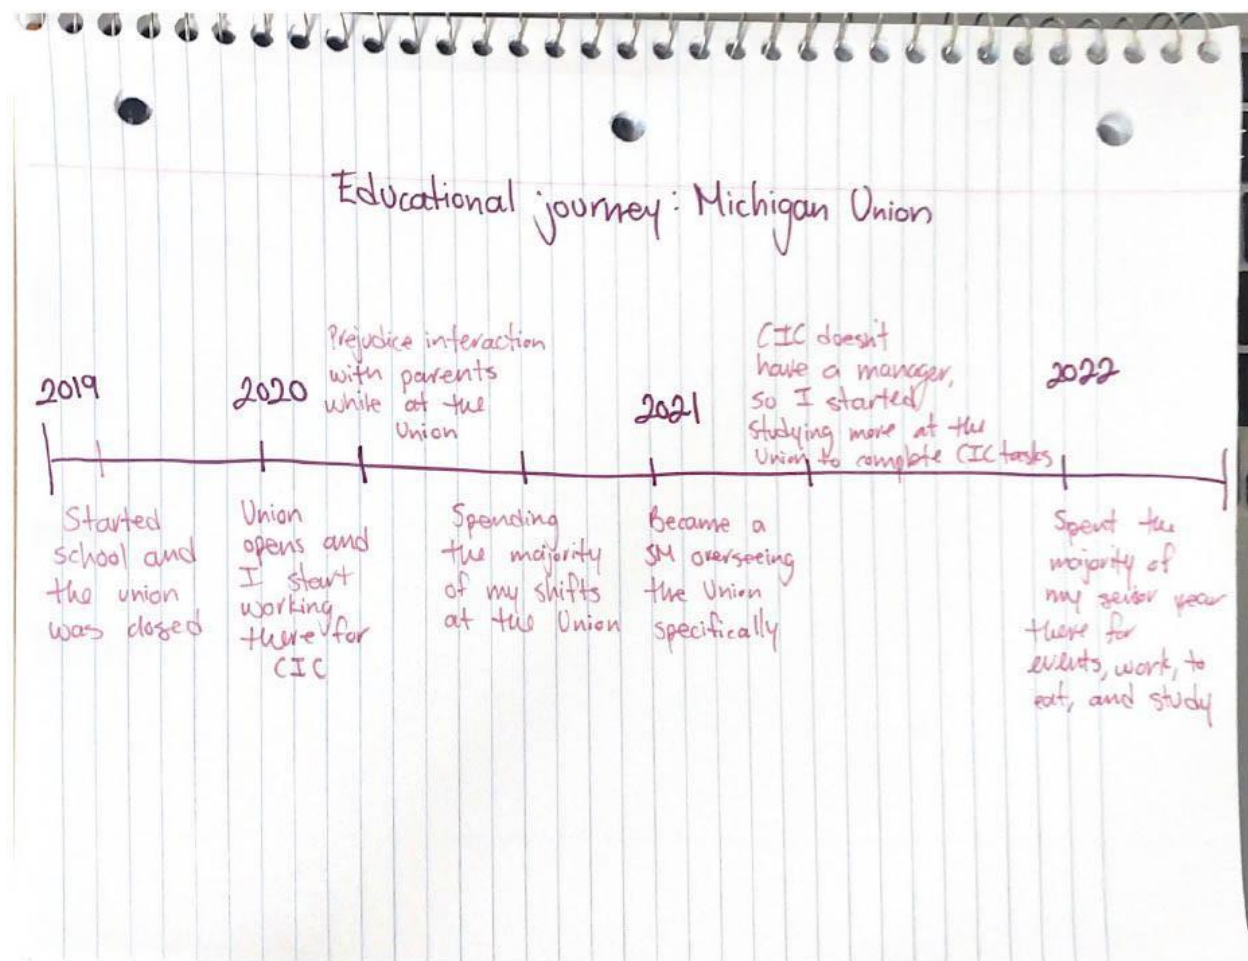 Educational journey: Michigan Union
2019
Started
school and
the union
was closed
2020
Union
opens and
I start
working
there for
CIC
Prejudice interaction
with parents
while at the
Union
Spending
the majority
of my shifts
at the Union
2021
Became a
SM overseeing
the Union
specifically
CIC doesn't
have a manager,
so I started
studying more at the
Union to complete CIC tasks
2022
Spent the
majority of
my senior year
there for
events, work, to
eat, and study